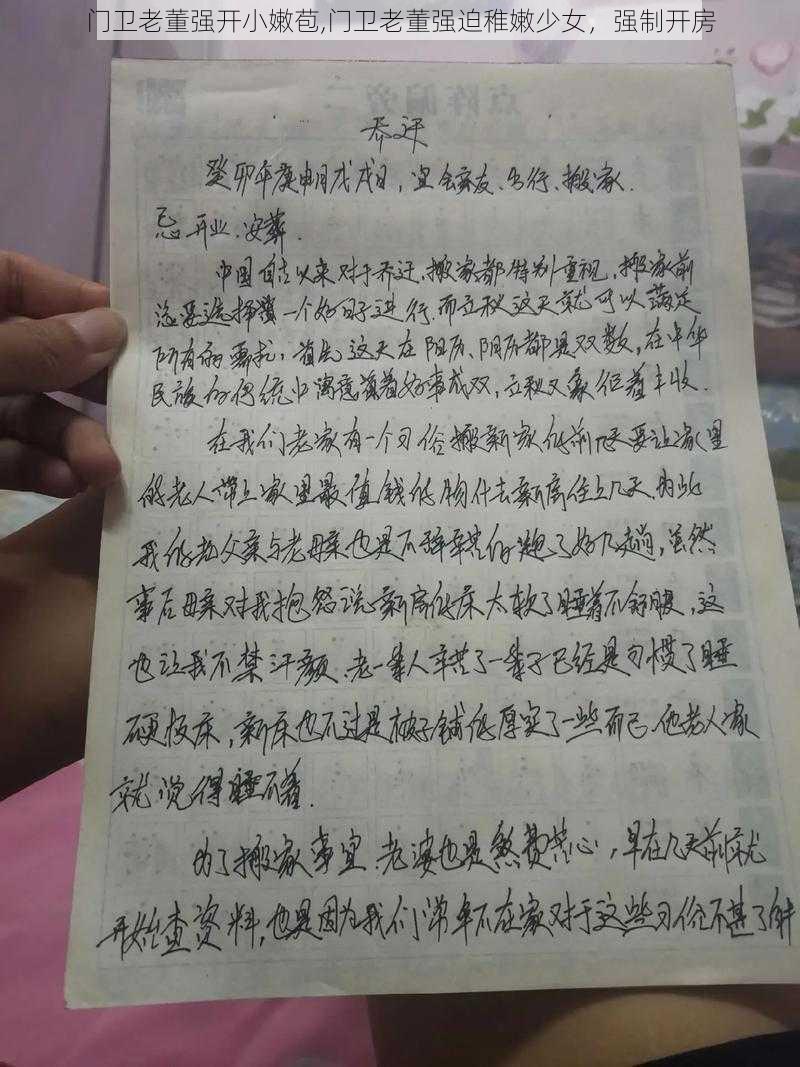 乔迁
癸卯年庚申月戊戌日，宜会亲友、出行、搬家.
忌开业.安葬.
中国自古以来对于乔迁,搬家都特别重视,搬家前
总要选择一个好日子进行.而立秋这天就可以满足
所有的需求，首先这天在阳历、阴历都是双数,在中华
民族的传统中寓意着好事成双,立秋又象征着丰收.
在我们老家有一个习俗搬新家的前几天要让家里
的老人带上家里最值钱的物什去新房住上几天.为此
我的老父亲与老母亲也是不辞辛苦的跑了好几趟,虽然
事后母亲对我抱怨说新房的床太软了睡着不舒服,这
也让我不禁汗颜.老一辈人辛苦了一辈子已经是习惯了睡
硬板床，新床也不过是被子铺的厚实了一些而已.他老人家
就觉得睡不着.
为了搬家事宜.老婆也是煞费苦心，早在几天前就
开始查资料,也是因为我们常年不在家对于这些习俗不甚了解